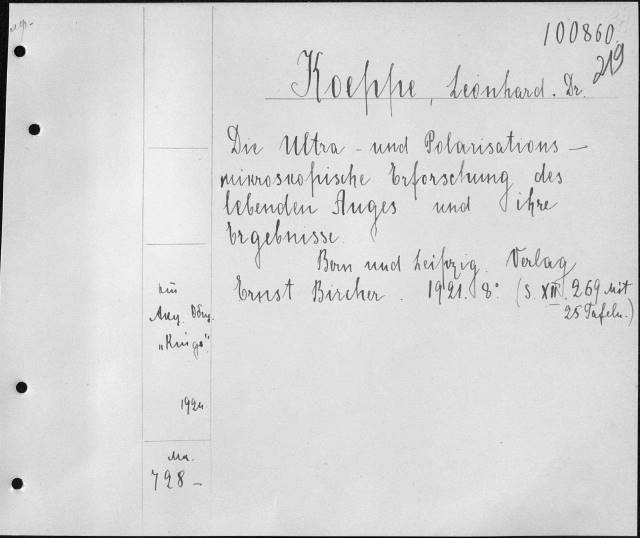 100860.
219
Koeppe, Leonhard. Dr.
Die Ultra - und Polarisations -
mikroskopische Erforschung des
lebenden Auges und ihre
Ergebnisse.
Bern und Leipzig. Verlag
Ernst Bircher. 1921. 8°. (S. XII. 269 mit
25 Tafeln.)
"Kniga".
1924.
Ma.
728 -